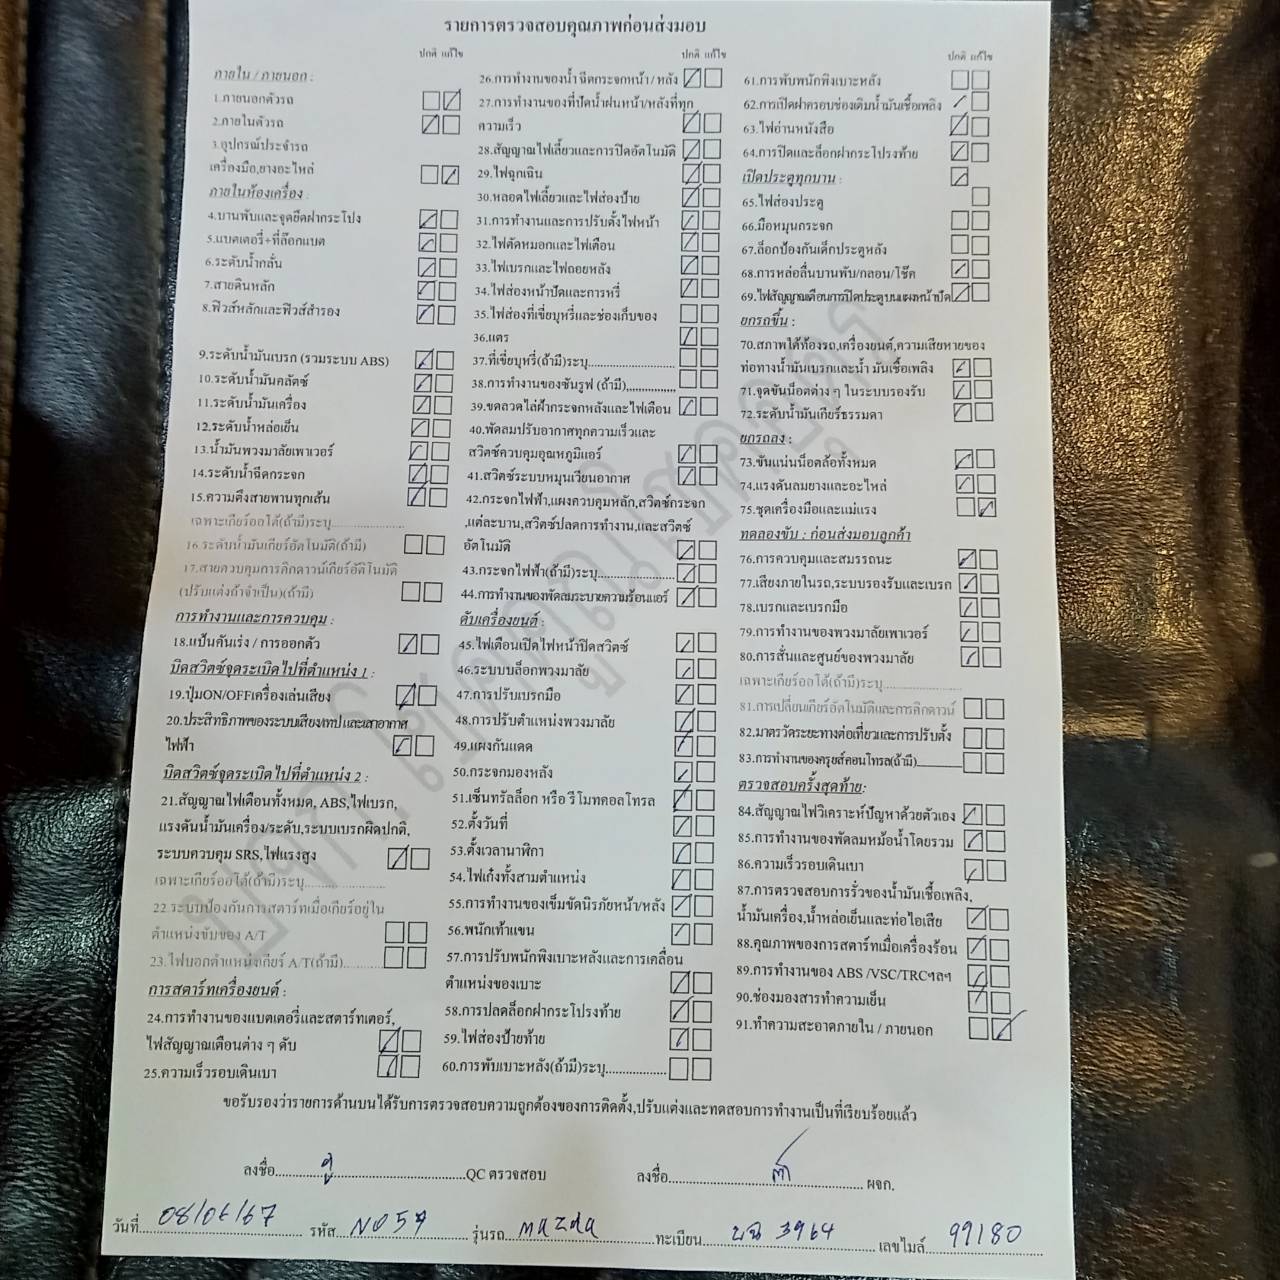 รายการตรวจสอบคุณภาพก่อนส่งมอบ
ปกติ แก้ไข
ภายใน / ภายนอก :
1.ภายนอกตัวรถ
2.ภายในตัวรถ
3.อุปกรณ์ประจำรถ
เครื่องมือ,ยางอะไหล่
ภายในห้องเครื่อง :
4.บานพับและจุดยึดฝากระโปง
5.แบตเตอรี่+ที่ล๊อกแบต
6.ระดับน้ำกลั่น
7.สายดินหลัก
8.ฟิวส์หลักและฟิวส์สำรอง
9.ระดับน้ำมันเบรก (รวมระบบ ABS)
10.ระดับน้ำมันคลัตซ์
11.ระดับน้ำมันเครื่อง
12.ระดับน้ำหล่อเย็น
13.น้ำมันพวงมาลัยเพาเวอร์
14.ระดับน้ำฉีดกระจก
15.ความตึงสายพานทุกเส้น
เฉพาะเกียร์ออโต้(ถ้ามี)ระบุ..................
16.ระดับน้ำมันเกียร์อัตโนมัติ(ถ้ามี)
17.สายควบคุมการคิกดาวน์เกียร์อัติโนมัติ
(ปรับแต่งถ้าจำเป็น)(ถ้ามี)
การทำงานและการควบคุม :
18.แป้นคันเร่ง / การออกตัว
บิดสวิตซ์จุดระเบิดไปที่ตำแหน่ง 1 :
19.ปุ่มON/OFFเครื่องเล่นเสียง
20.ประสิทธิภาพของระบบเสียง/เทปและเสาอากาศ
ไฟฟ้า
บิดสวิตซ์จุดระเบิดไปที่ตำแหน่ง 2 :
21.สัญญาณไฟเตือนทั้งหมด, ABS,ไฟเบรก,
แรงดันน้ำมันเครื่อง/ระดับ,ระบบเบรกผิดปกติ,
ระบบควบคุม SRS,ไฟแรงสูง
เฉพาะเกียร์ออโต้(ถ้ามี)ระบุ....................
22.ระบบป้องกันการสตาร์ทเมื่อเกียร์อยู่ใน
ตำแหน่งขับของ A/T
23.ไฟบอกตำแหน่งเกียร์ A/T(ถ้ามี)..........
การสตาร์ทเครื่องยนต์ :
24.การทำงานของแบตเตอรี่และสตาร์ทเตอร์,
ไฟสัญญาณเตือนต่าง ๆ ดับ
25.ความเร็วรอบเดินเบา
ปกติ แก้ไข
26.การทำงานของน้ำ ฉีดกระจกหน้า / หลัง
27.การทำงานของที่ปัดน้ำฝนหน้า/หลังที่ทุก
ความเร็ว
28.สัญญาณไฟเลี้ยวและการปิดอัตโนมัติ
29.ไฟฉุกเฉิน
30.หลอดไฟเลี้ยวและไฟส่องป้าย
31.การทำงานและการปรับตั้งไฟหน้า
32.ไฟตัดหมอกและไฟเตือน
33.ไฟเบรกและไฟถอยหลัง
34.ไฟส่องหน้าปัดและการหรี่
35.ไฟส่องที่เขี่ยบุหรี่และช่องเก็บของ
36.แตร
37.ที่เขี่ยบุหรี่(ถ้ามี)ระบุ......................
38.การทำงานของซันรูฟ (ถ้ามี)..............
39.ขดลวดไล่ฝ้ากระจกหลังและไฟเตือน
40.พัดลมปรับอากาศทุกความเร็วและ
สวิตซ์ควบคุมอุณหภูมิแอร์
41.สวิตซ์ระบบหมุนเวียนอากาศ
42.กระจกไฟฟ้า,แผงควบคุมหลัก,สวิตซ์กระจก
,แต่ละบาน,สวิตซ์ปลดการทำงาน,และสวิตซ์
อัตโนมัติ
43.กระจกไฟฟ้า(ถ้ามี)ระบุ......................
44.การทำงานของพัดลมระบายความร้อนแอร์
ดับเครื่องยนต์ :
45.ไฟเตือนเปิดไฟหน้าปิดสวิตซ์
46.ระบบบล็อกพวงมาลัย
47.การปรับเบรกมือ
48.การปรับตำแหน่งพวงมาลัย
49.แผงกันแดด
50.กระจกมองหลัง
51.เซ็นทรัลล็อก หรือ รีโมทคอลโทรล
52.ตั้งวันที่
53.ตั้งเวลานาฬิกา
54.ไฟเก๋งทั้งสามตำแหน่ง
55.การทำงานของเข็มขัดนิรภัยหน้า/หลัง
56.พนักเท้าแขน
57.การปรับพนักพิงเบาะหลังและการเคลื่อน
ตำแหน่งของเบาะ
58.การปลดล็อกฝากระโปรงท้าย
59.ไฟส่องป้ายท้าย
60.การพับเบาะหลัง(ถ้ามี)ระบุ..................
ปกติ แก้ไข
61.การพับพนักพิงเบาะหลัง
62.การเปิดฝาครอบช่องเติมน้ำมันเชื้อเพลิง
63.ไฟอ่านหนังสือ
64.การปิดและล็อกฝากระโปรงท้าย
เปิดประตูทุกบาน :
65.ไฟส่องประตู
66.มือหมุนกระจก
67.ล็อกป้องกันเด็กประตูหลัง
68.การหล่อลื่นบานพับ/กลอน/โช๊ค
69.ไฟสัญญาณเตือนการปิดประตูบนแผงหน้าปัด
ยกรถขึ้น :
70.สภาพใต้ท้องรถ,เครื่องยนต์,ความเสียหายของ
ท่อทางน้ำมันเบรกและน้ำ มันเชื้อเพลิง
71.จุดขันน็อตต่าง ๆ ในระบบรองรับ
72.ระดับน้ำมันเกียร์ธรรมดา
ยกรถลง :
73.ขันแน่นน็อตล้อทั้งหมด
74.แรงดันลมยางและอะไหล่
75.ชุดเครื่องมือและแม่แรง
ทดลองขับ : ก่อนส่งมอบลูกค้า
76.การควบคุมและสมรรถนะ
77.เสียงภายในรถ,ระบบรองรับและเบรก
78.เบรกและเบรกมือ
79.การทำงานของพวงมาลัยเพาเวอร์
80.การสั่นและศูนย์ของพวงมาลัย
เฉพาะเกียร์ออโต้(ถ้ามี)ระบุ....................
81.การเปลี่ยนเกียร์อัตโนมัติและการคิกดาวน์
82.มาตรวัดระยะทางต่อเที่ยวและการปรับตั้ง
83.การทำงานของครุยส์คอนโทรล(ถ้ามี)..............
ตรวจสอบครั้งสุดท้าย:
84.สัญญาณไฟวิเคราะห์ปัญหาด้วยตัวเอง
85.การทำงานของพัดลมหม้อน้ำโดยรวม
86.ความเร็วรอบเดินเบา
87.การตรวจสอบการรั่วของน้ำมันเชื้อเพลิง,
น้ำมันเครื่อง,น้ำหล่อเย็นและท่อไอเสีย
88.คุณภาพของการสตาร์ทเมื่อเครื่องร้อน
89.การทำงานของ ABS /VSC/TRCฯลฯ
90.ช่องมองสารทำความเย็น
91.ทำความสะอาดภายใน / ภายนอก
ขอรับรองว่ารายการด้านบนได้รับการตรวจสอบความถูกต้องของการติดตั้ง,ปรับแต่งและทดสอบการทำงานเป็นที่เรียบร้อยแล้ว
ลงชื่อ..................QC ตรวจสอบ ลงชื่อ.................. ผจก.
วันที่ 08/06/67 รหัส NO 57 รุ่นรถ mazda ทะเบียน บฉ 3964 เลขไมล์ 99180